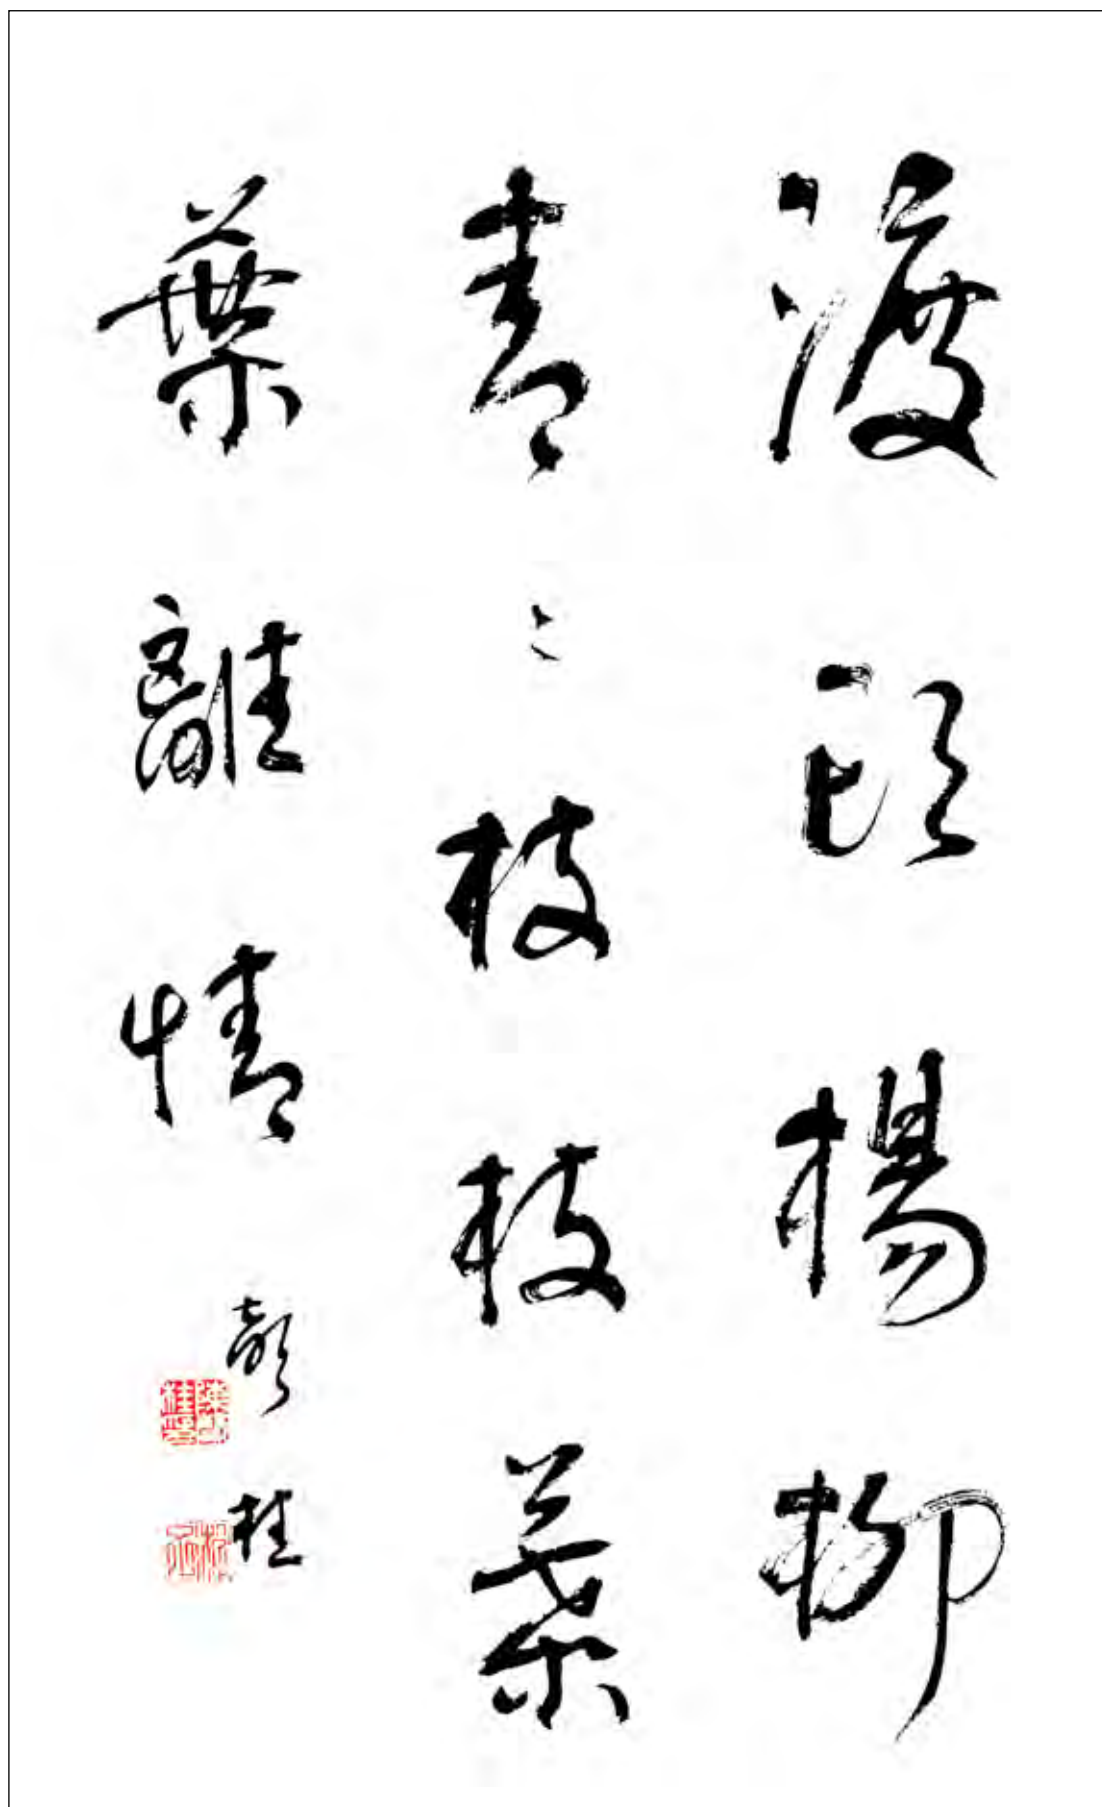 渡頭楊柳
青〻枝枝葉
葉離情
桂